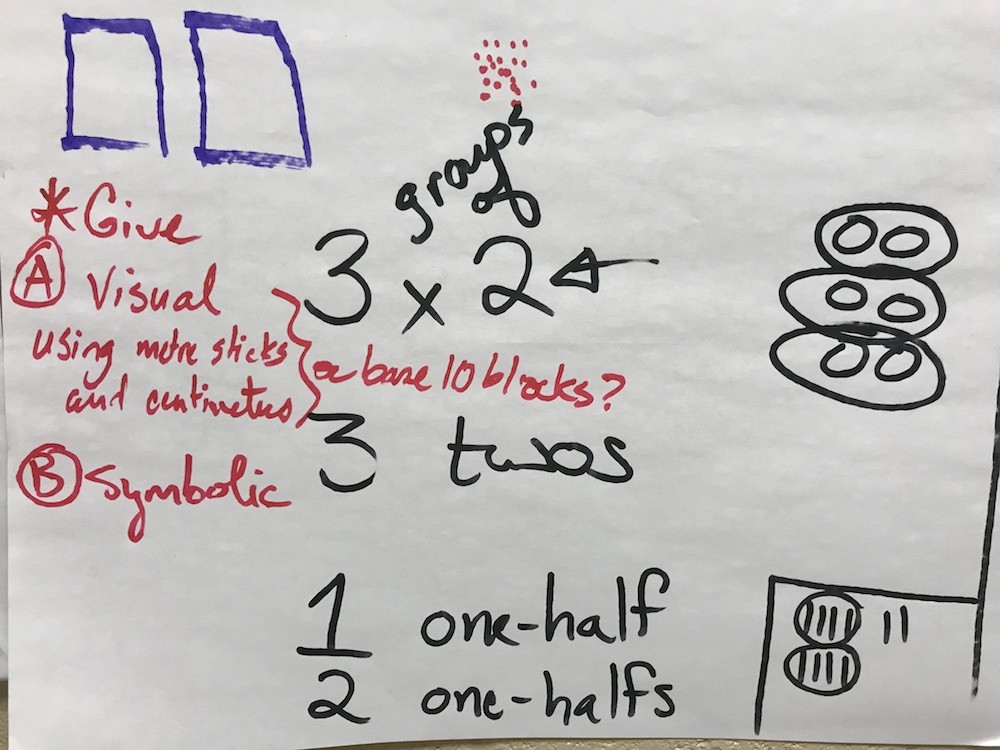 groups
of
3 x 2
* Give
A Visual
using metre sticks
and centimetres
or base 10 blocks?
3 twos
B Symbolic
1 one-half
2 one-halfs